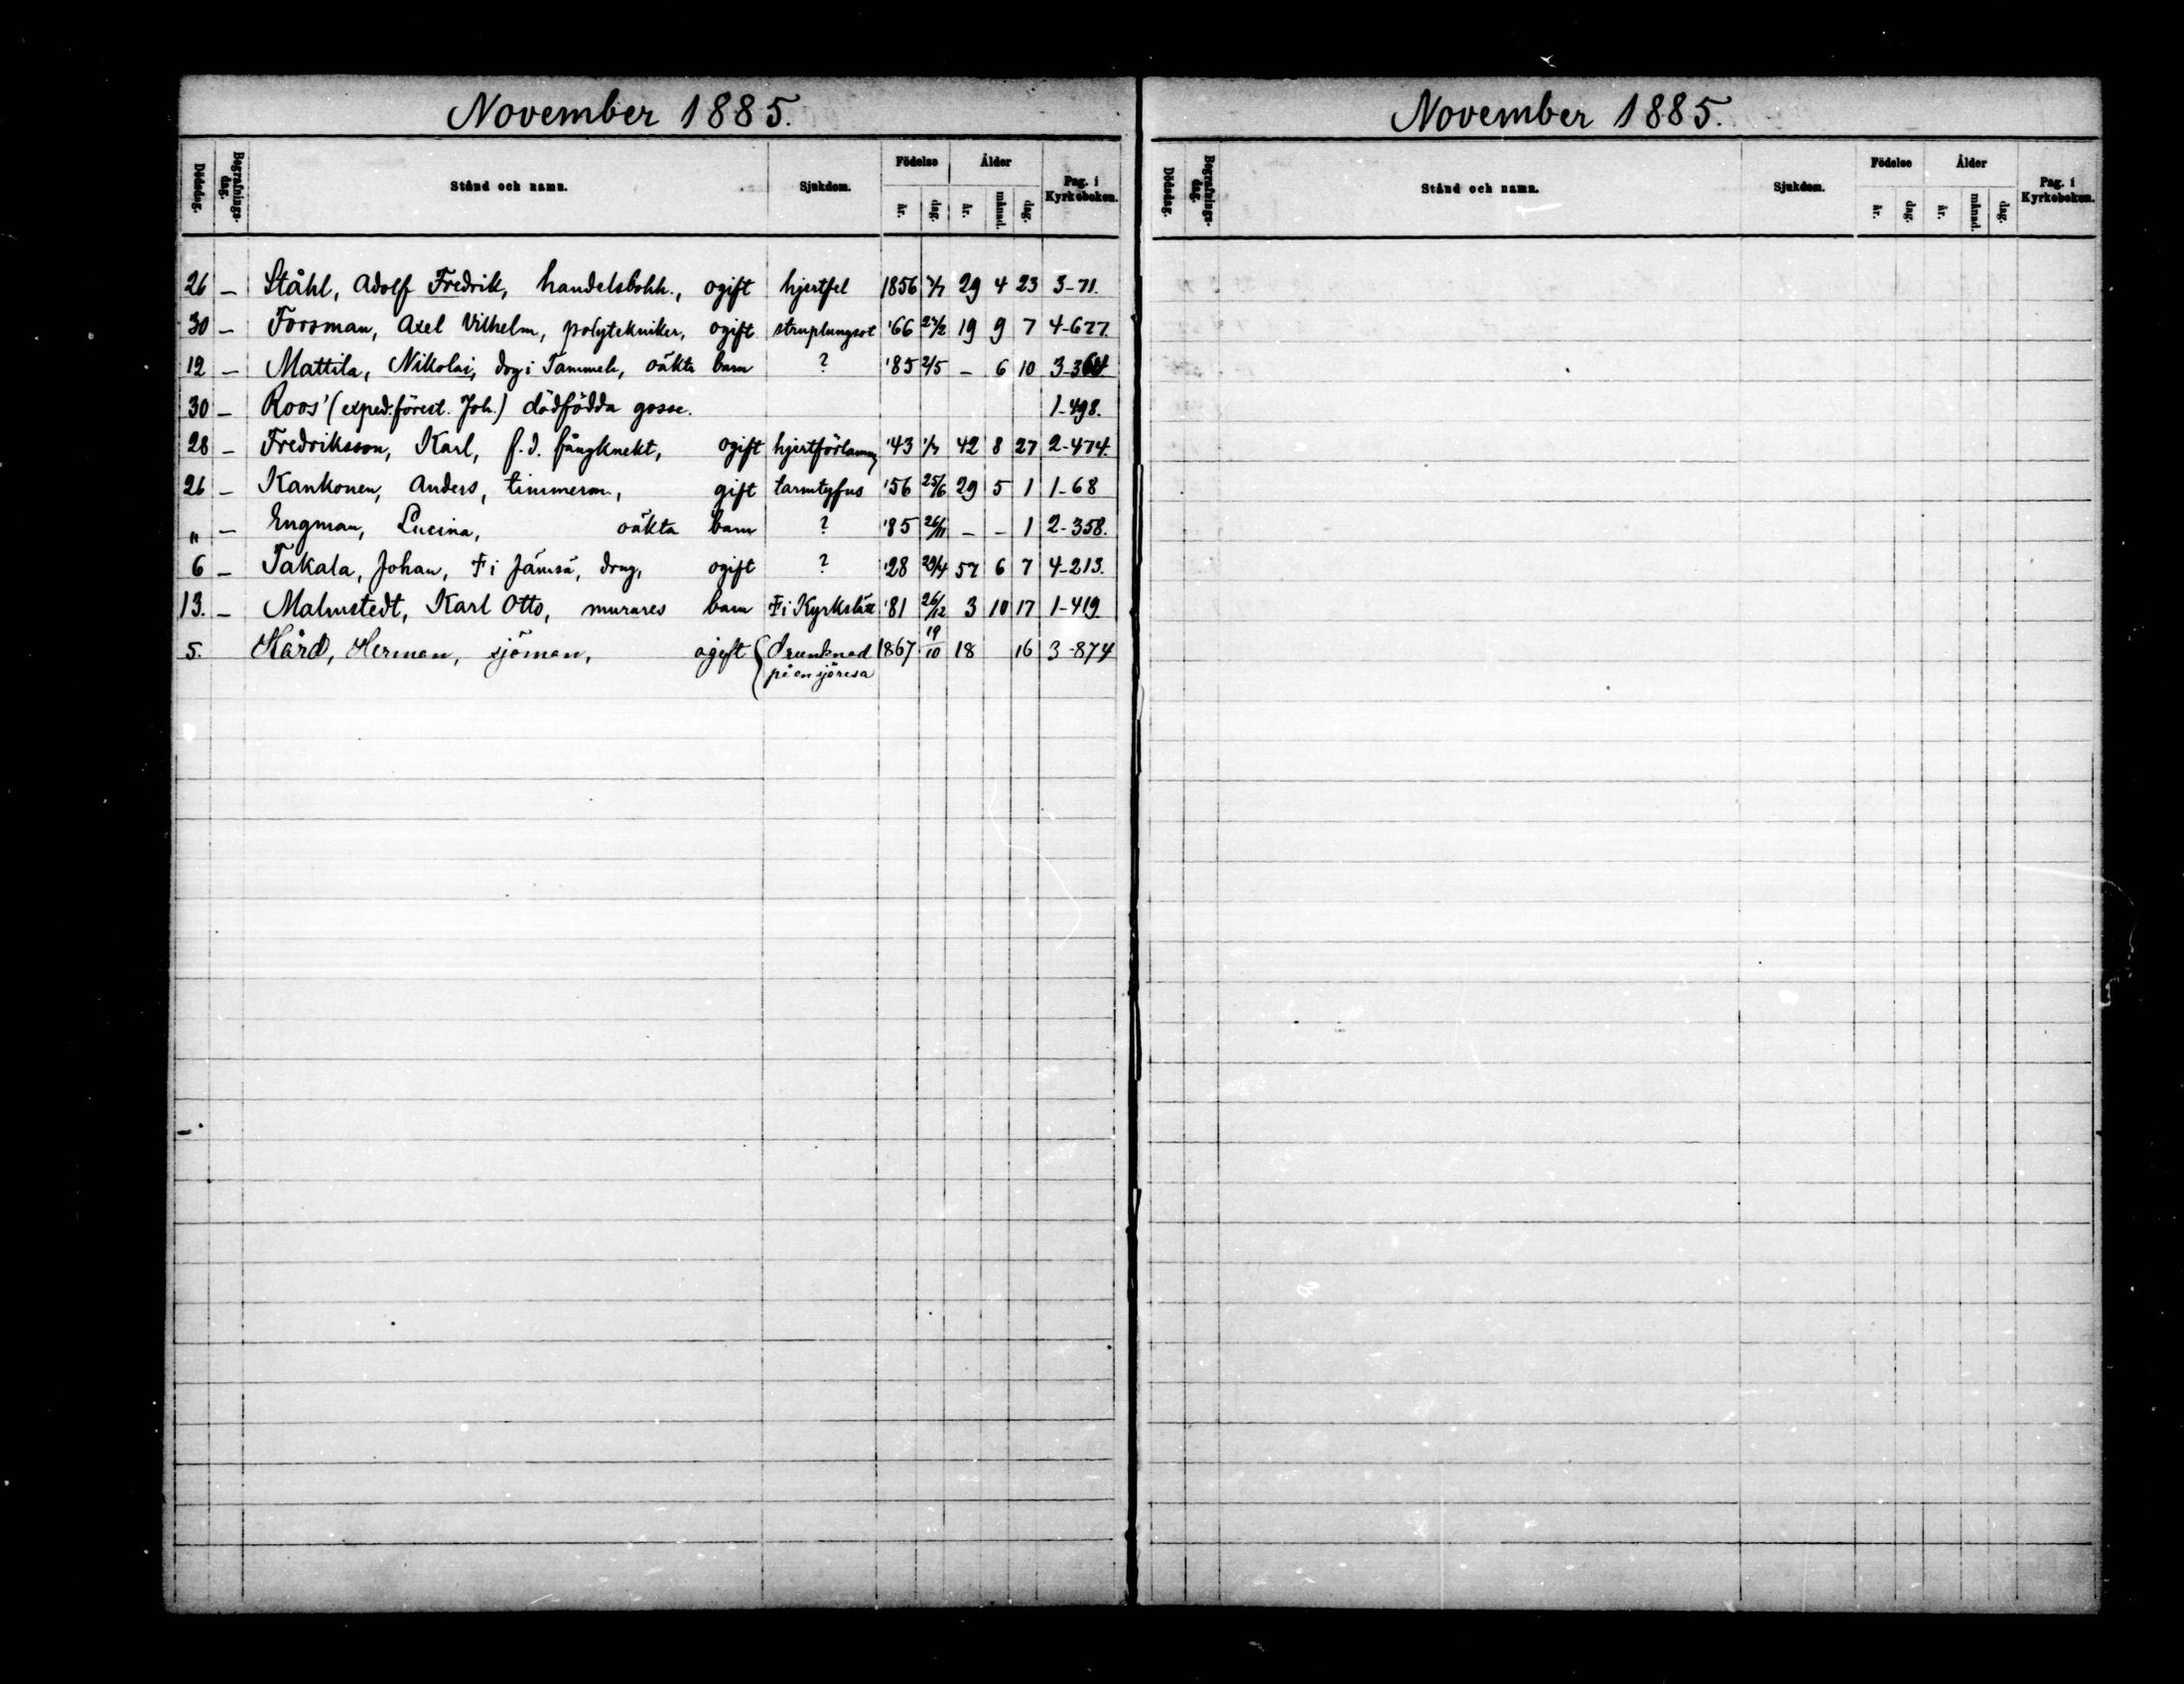 November 1885.
Dödsdag. Begrafningsdag. Stånd och namn. Sjukdom. Födelse år. dag. Ålder år. månad. dag. Pag. i Kyrkoboken.
26 — Ståhl, Adolf Fredrik, handelsbokh., ogift hjertfel 1856 3/7 29 4 23 3-71.
30 — Forsman, Axel Vilhelm, polytekniker, ogift struplungsot '66 /2 19 9 7 4-677.
12 — Mattila, Nikolai, dog i Tammela, oäkta barn ? '85 2/5 — 6 10 3-364.
30 — Roos' (exped:förest. Joh.) dödfödda gosse. 1-498.
28 — Fredriksson, Karl, f.d. fångknekt, ogift hjertförlamng '43 42 8 27 2-474.
26 — Kankonen, Anders, timmerm., gift tarmtyfus '56 25/6 29 5 1 1-68
„ — Engman, Lucina, oäkta barn ? '85 26/11 — — 1 2-358.
6 — Takala, Johan, † i Jämsä, drng, ogift ? '28 29/4 57 6 7 4-213.
13. — Malmstedt, Karl Otto, murares barn † i Kyrkslätt '81 26/12 3 10 17 1-419.
5. Hård, Herman, sjöman, ogift (drunknad 1867 19/10 18 16 3-874
på en sjöresa
November 1885.
Dödsdag. Begrafningsdag. Stånd och namn. Sjukdom. Födelse år. dag. Ålder år. månad. dag. Pag. i Kyrkoboken.